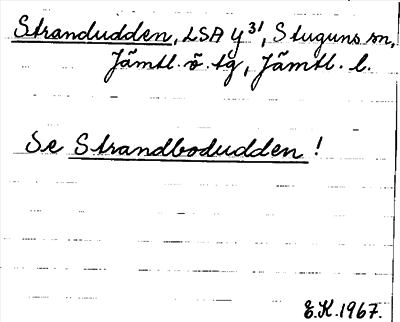 Strandudden, LSA y 31, Stuguns sn,
Jämtl. ö. tg, Jämtl. l.
Se Strandbodudden!
E.K. 1967.